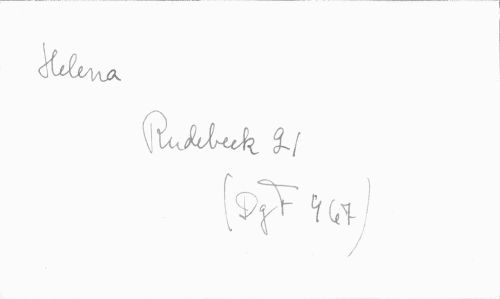 Helena
Rudebeck 21
(DgF 467)